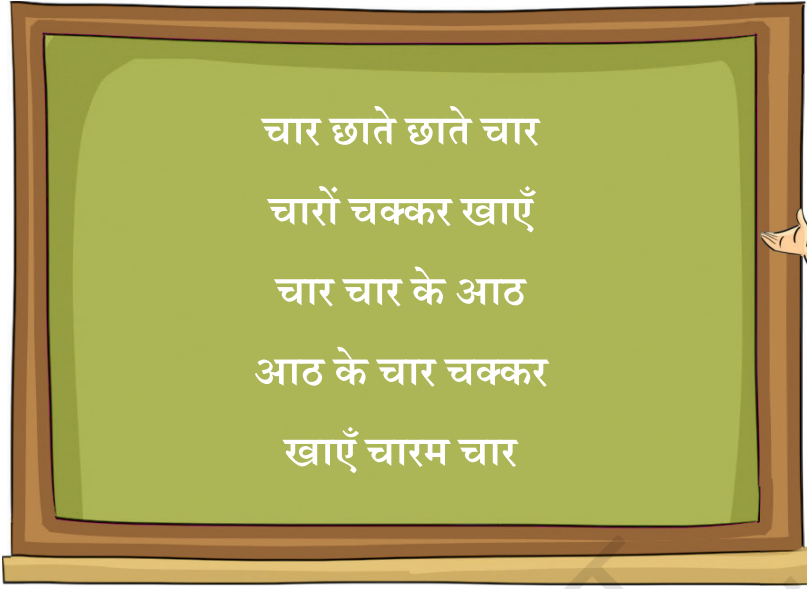 चार छाते छाते चार
चारों चक्कर खाएँ
चार चार के आठ
आठ के चार चक्कर
खाएँ चारम चार